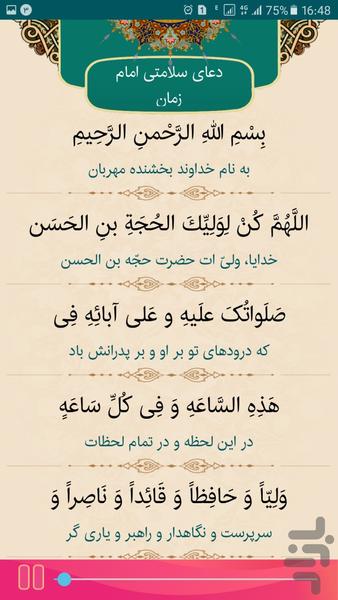 75% 16:48
دعای سلامتی امام
زمان
بِسْمِ اللهِ الرَّحْمنِ الرَّحِیمِ
به نام خداوند بخشنده مهربان
اللَّهُمَّ کُنْ لِوَلِیِّكَ الحُجَةِ بنِ الحَسَن
خدایا، ولیّ ات حضرت حجّه بن الحسن
صَلَواتُکَ علَیهِ و عَلی آبائِهِ فِی
که درودهای تو بر او و بر پدرانش باد
هَذِهِ السَّاعَهِ وَ فِی کُلِّ سَاعَهٍ
در این لحظه و در تمام لحظات
وَلِیّاً وَ حَافِظاً وَ قَائِداً وَ نَاصِراً وَ
سرپرست و نگاهدار و راهبر و یاری گر
بازار